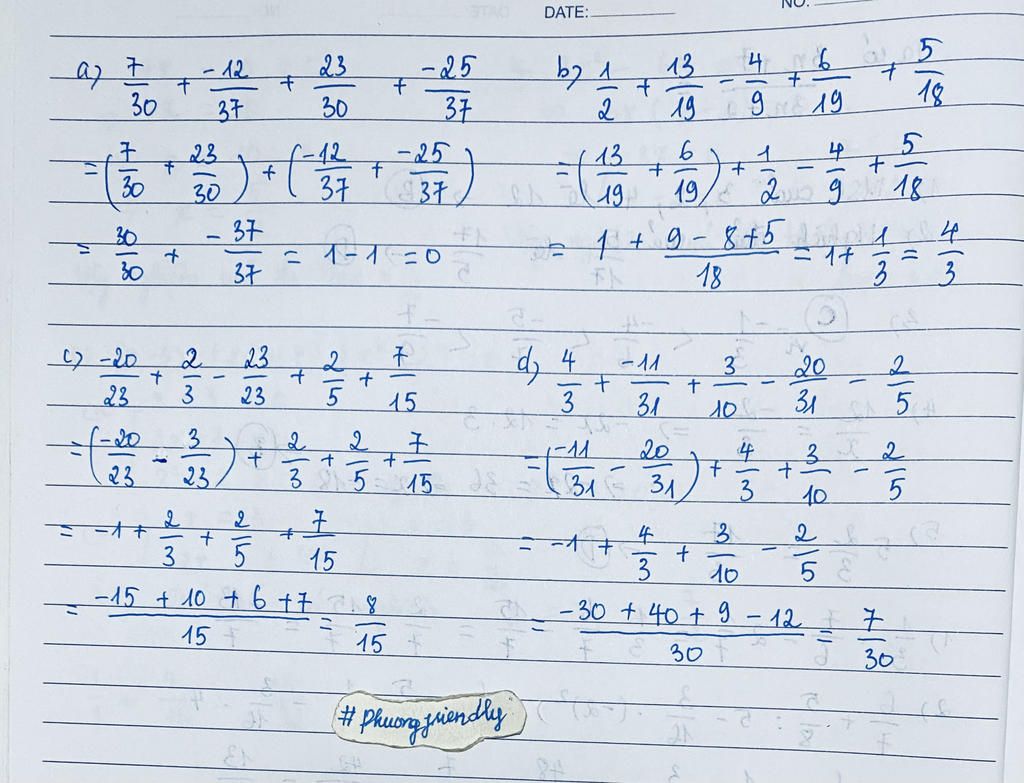 DATE: NO.
a) 7/30 + -12/37 + 23/30 + -25/37
= (7/30 + 23/30) + (-12/37 + -25/37)
= 30/30 + -37/37 = 1-1 = 0
b) 1/2 + 13/19 - 4/9 + 6/19 + 5/18
= (13/19 + 6/19) + 1/2 - 4/9 + 5/18
= 1 + 9 - 8 + 5/18 = 1 + 1/3 = 4/3
c) -20/23 + 2/3 - 23/23 + 2/5 + 7/15
= (-20/23 - 3/23) + 2/3 + 2/5 + 7/15
= -1 + 2/3 + 2/5 + 7/15
= -15 + 10 + 6 + 7/15 = 8/15
d) 4/3 + -11/31 + 3/10 - 20/31 - 2/5
= (-11/31 - 20/31) + 4/3 + 3/10 - 2/5
= -1 + 4/3 + 3/10 - 2/5
= -30 + 40 + 9 - 12/30 = 7/30
#phuongfriendly